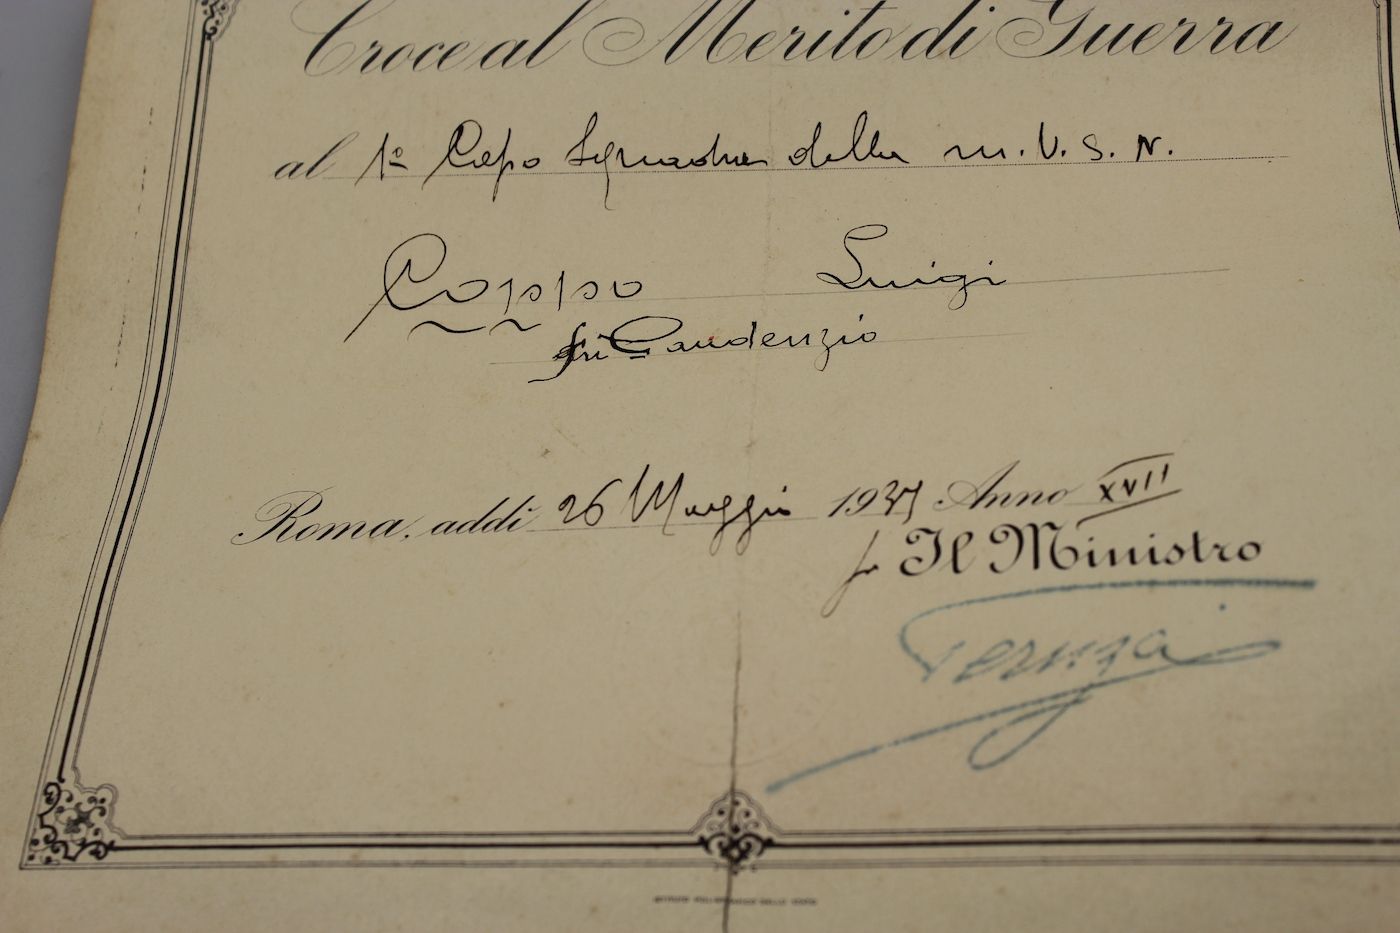 Croce al Merito di Guerra
al 1º Capo Squadra della M.V.S.N.
Coppo Luigi
fu Gaudenzio
Roma, addì 26 Maggio 1939 Anno XVII
p. Il Ministro